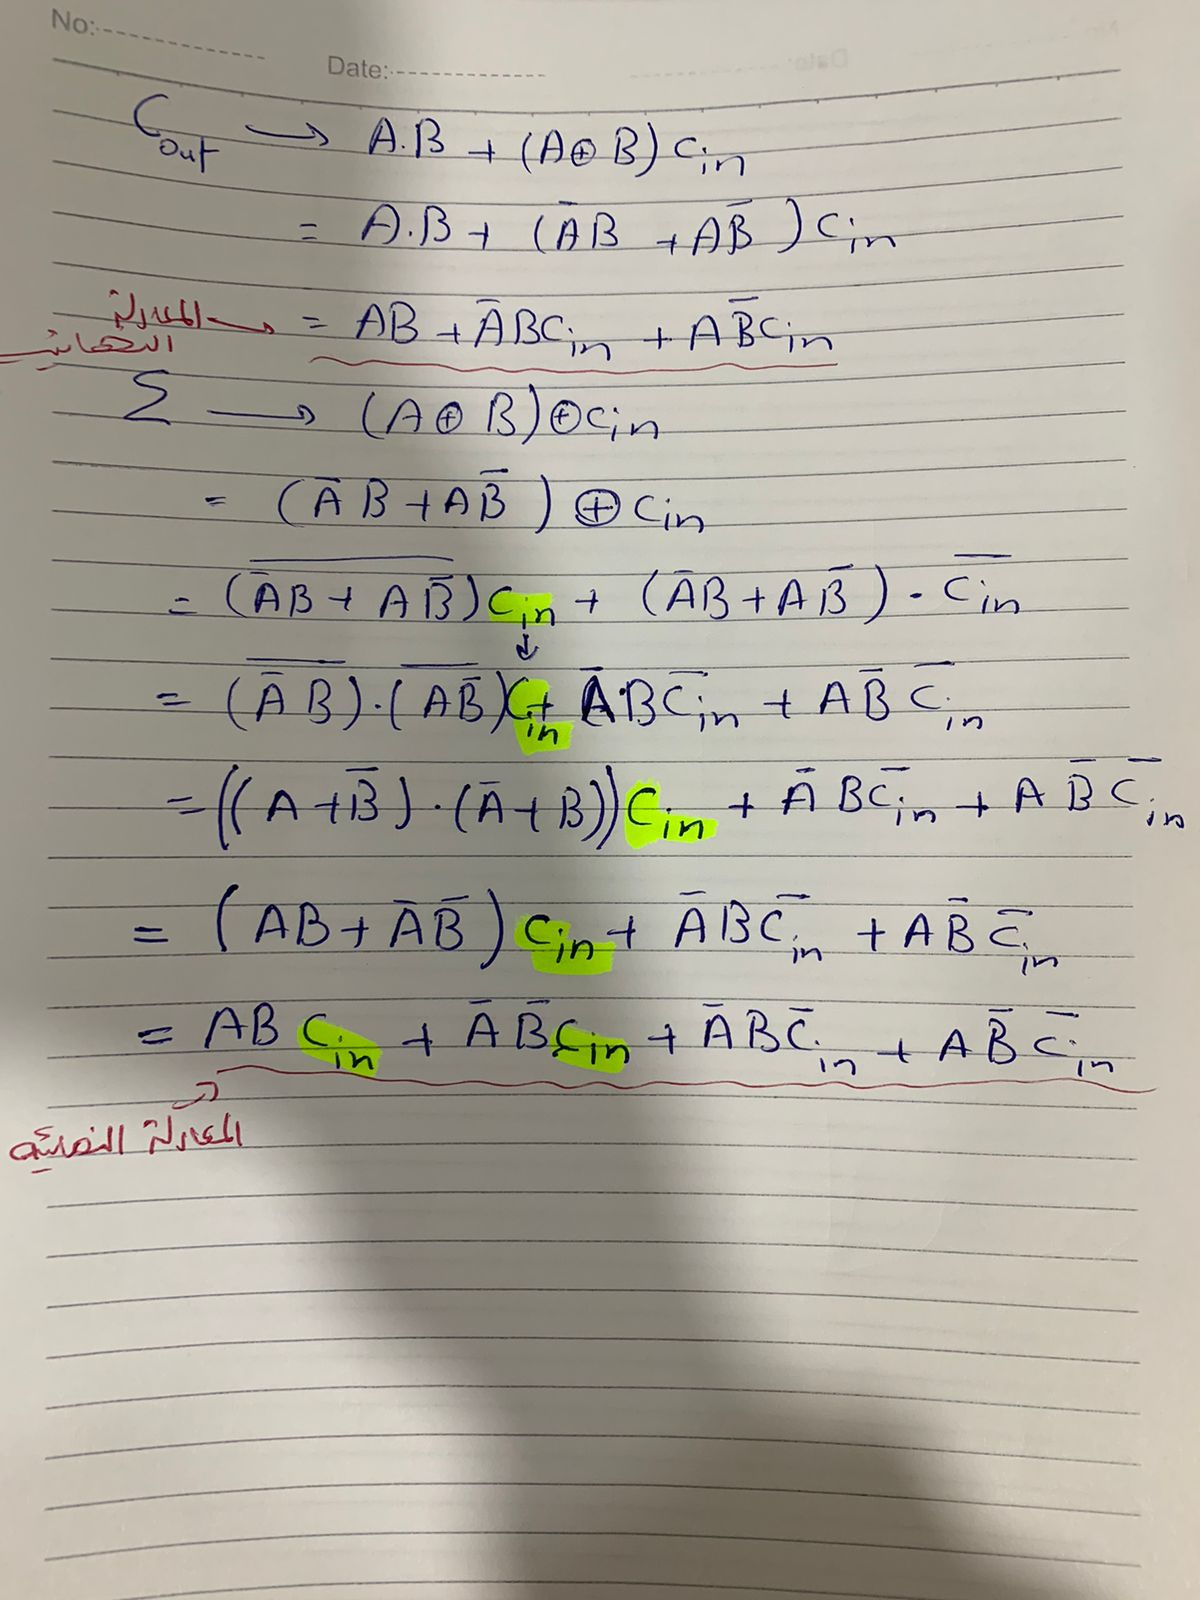 No:
Date:
Cout → A.B + (A⊕B) Cin
= A.B + (A̅B + AB̅) Cin
المعادلة النهائية → = AB + A̅BCin + AB̅Cin
Σ → (A⊕B)⊕Cin
= (A̅B + AB̅) ⊕ Cin
= (\overline{A̅B + AB̅})Cin + (A̅B + AB̅) · \overline{Cin}
= (\overline{A̅B}).(\overline{AB̅})Cin + A̅.B\overline{Cin} + AB̅\overline{Cin}
= ((A + B̅).(A̅ + B))Cin + A̅B\overline{Cin} + AB̅\overline{Cin}
= (AB + A̅B̅) Cin + A̅B\overline{Cin} + AB̅\overline{Cin}
= ABCin + A̅B̅Cin + A̅B\overline{Cin} + AB̅\overline{Cin}
المعادلة النهائية